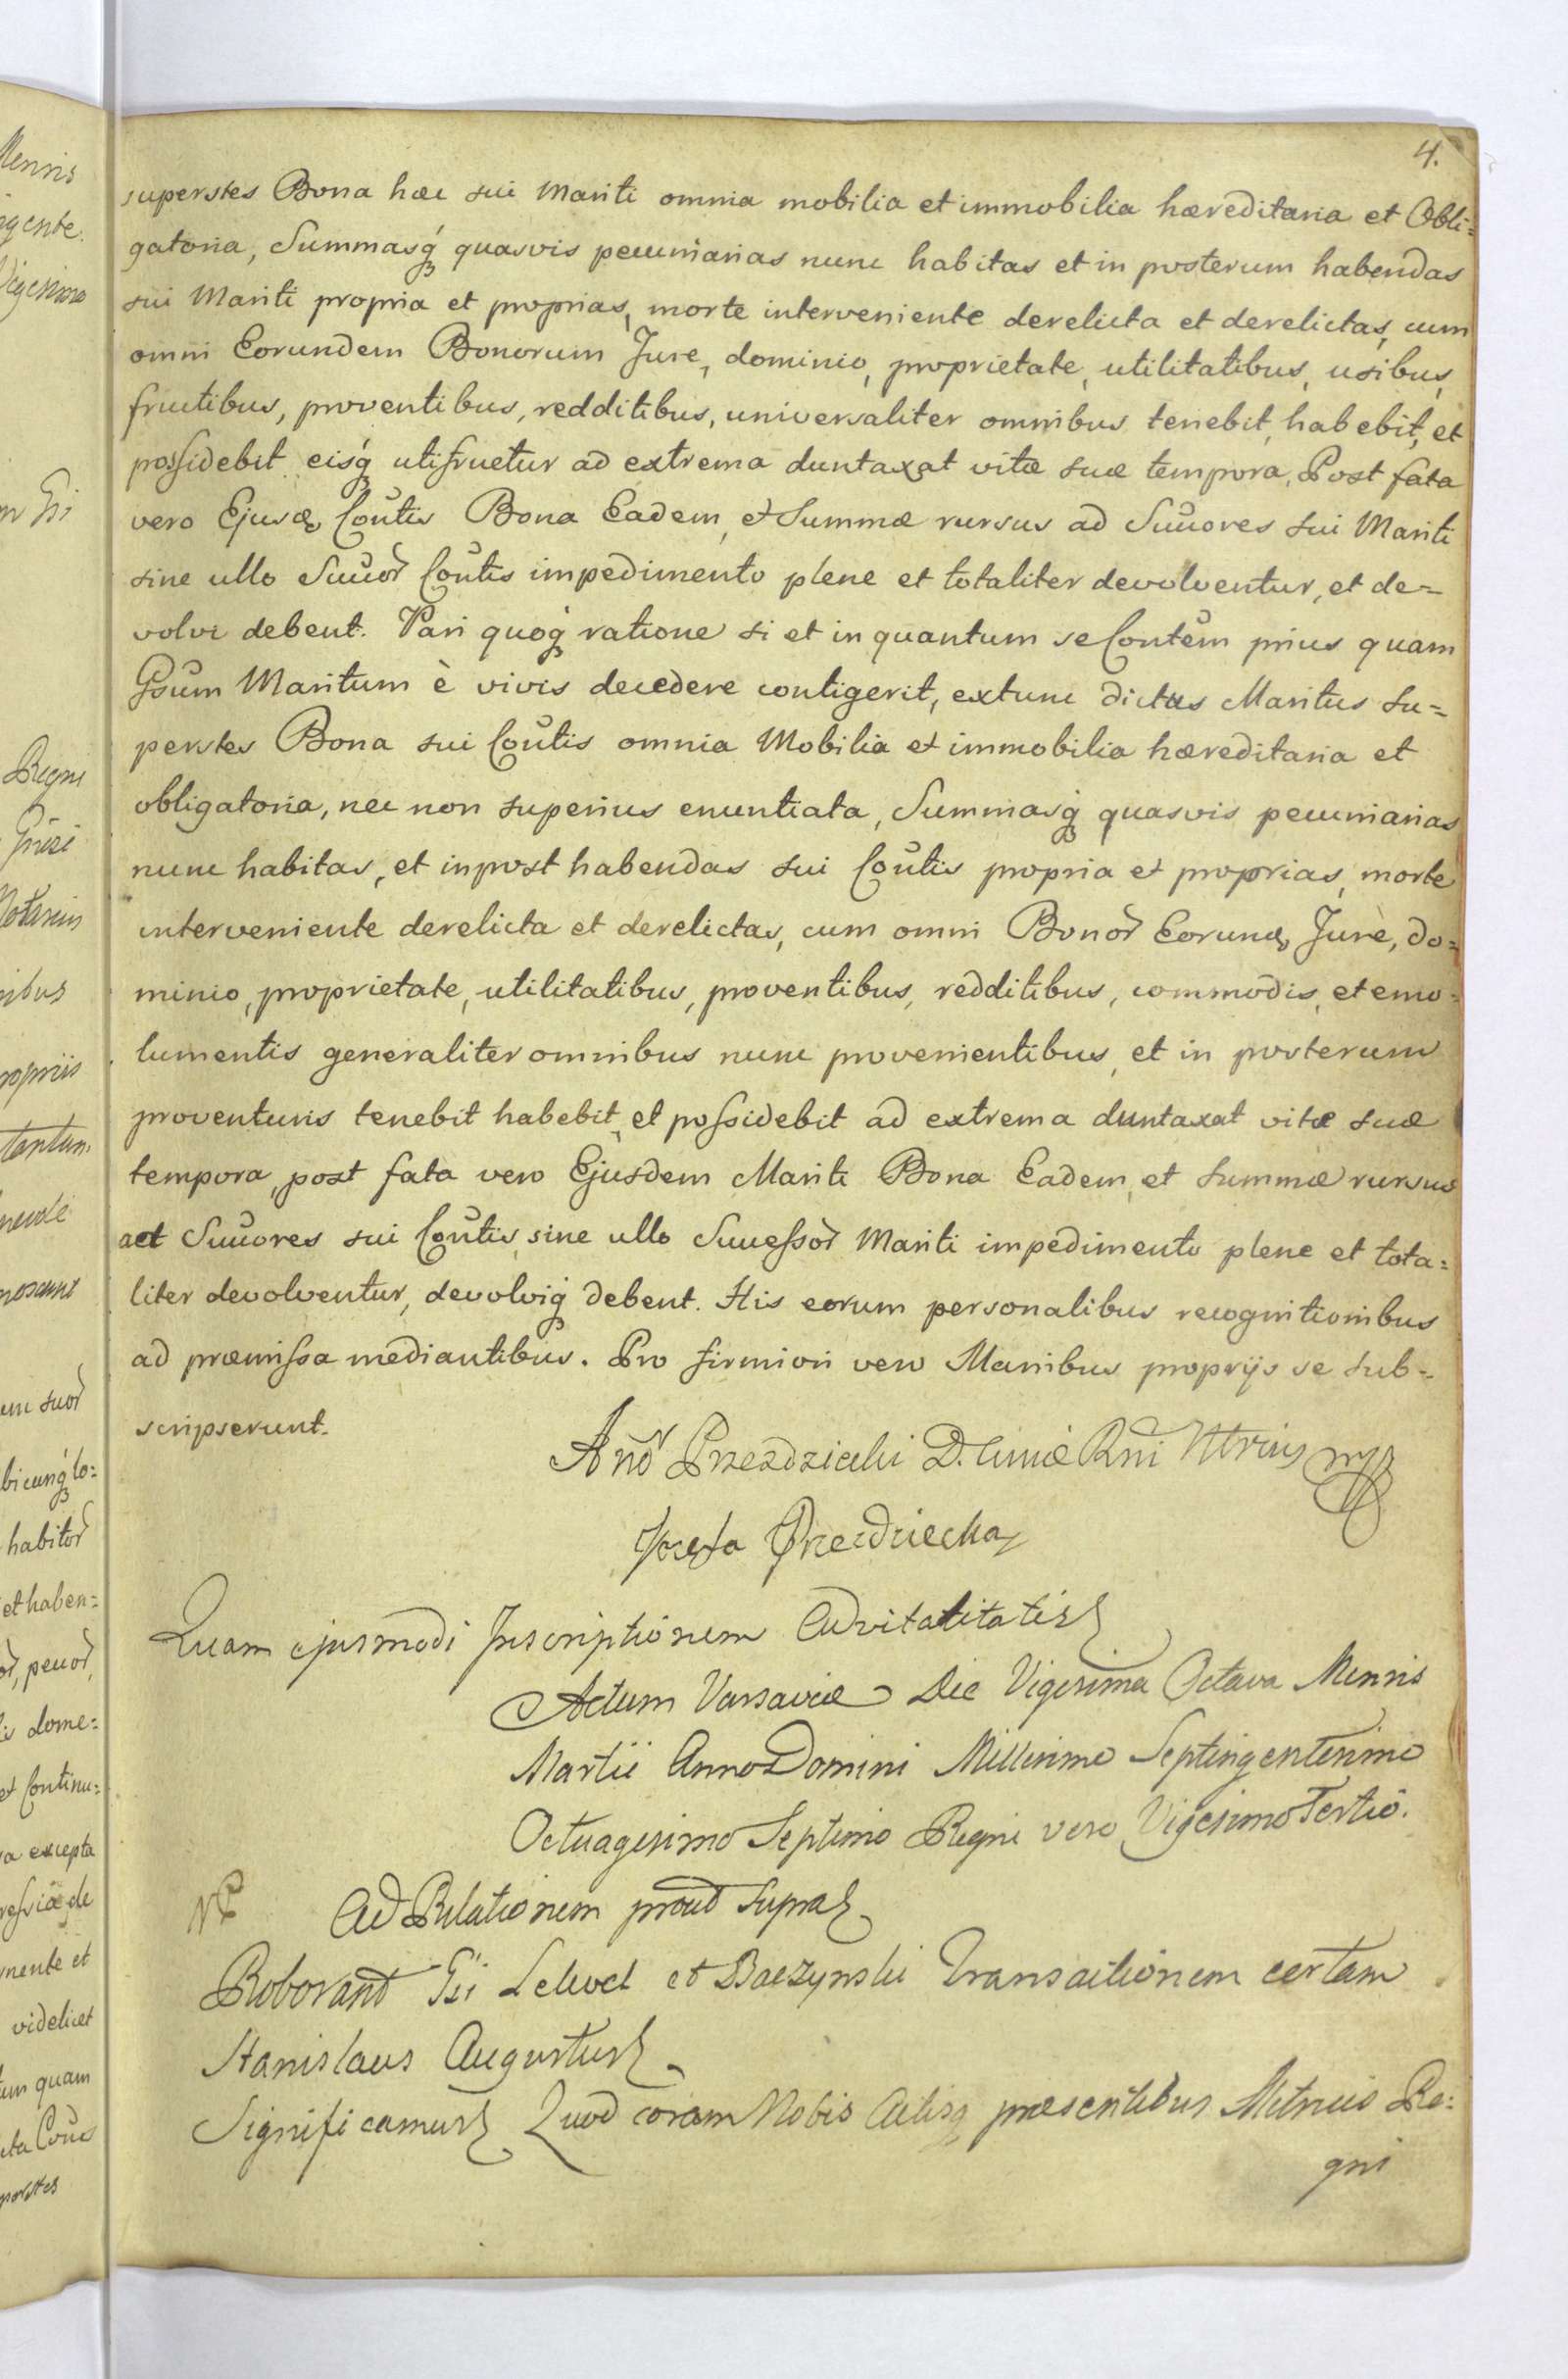 4.
superstes Bona hæc sui Mariti omnia mobilia et immobilia hæreditaria et Obli=
gatoria, Summasq́ quasvis pecuniarias nunc habitas et in posterum habendas
sui Mariti propria et proprias, morte interveniente derelicta et derelictas, cum
omni Eorundem Bonorum Jure, dominio, proprietate, utilitatibus, usibus,
fructibus, proventibus, redditibus, universaliter omnibus tenebit, habebit, et
possidebit eisq́ utifruetur ad extrema duntaxat vitæ suæ tempora. Post fata
vero Ejusd, Cоntis Bona Eadem, et Summæ rursus ad Succores sui Mariti
sine ullo Succor Contis impedimento plene et totaliter devolventur, et de=
volvi debent. Pari quoq́ ratione si et in quantum se Contem prius quam
Ipsum Maritum è vivis decedere contigerit, extunc dictus Maritus su=
perstes Bona sui Contis omnia Mobilia et immobilia hæreditaria et
obligatoria, nec non superius enuntiata, Summasq́ quasvis pecuniarias
nunc habitas, et inpost habendas sui Contis propria et proprias, morte
interveniente derelicta et derelictas, cum omni Bonor Eorund, Jure, do=
minio, proprietate, utilitatibus, proventibus, redditibus, commodis, et emo=
lumentis generaliter omnibus nunc provenientibus, et in posterum
proventuris tenebit habebit, et possidebit ad extrema duntaxat vitæ suæ
tempora, post fata vero Ejusdem Mariti Bona Eadem, et summæ rursus
ad Succores sui Contis, sine ullo Successor Mariti impedimento plene et tota=
liter devolventur, devolviq́ debent. His eorum personalibus recognitionibus
ad præmissa mediantibus. Pro firmiori vero Manibus proprijs se sub=
scripserunt.
Przezdziecki
Przezdziecka
Quam ejusmodi Inscriptionem Advitalitatis
Actum Varsaviæ Die Vigesima Octava Mensis
Martii Anno Domini Millesimo Septingentesimo
Octuagesimo Septimo Regni vero Vigesimo Tertio.
Ad Relationem prout supra
Roborant Gsi Lelewel et Baczynski Transactionem certam
Stanislaus Augustus
Significamus Quod coram Nobis Actisq præsentibus Metrices Re:
gni